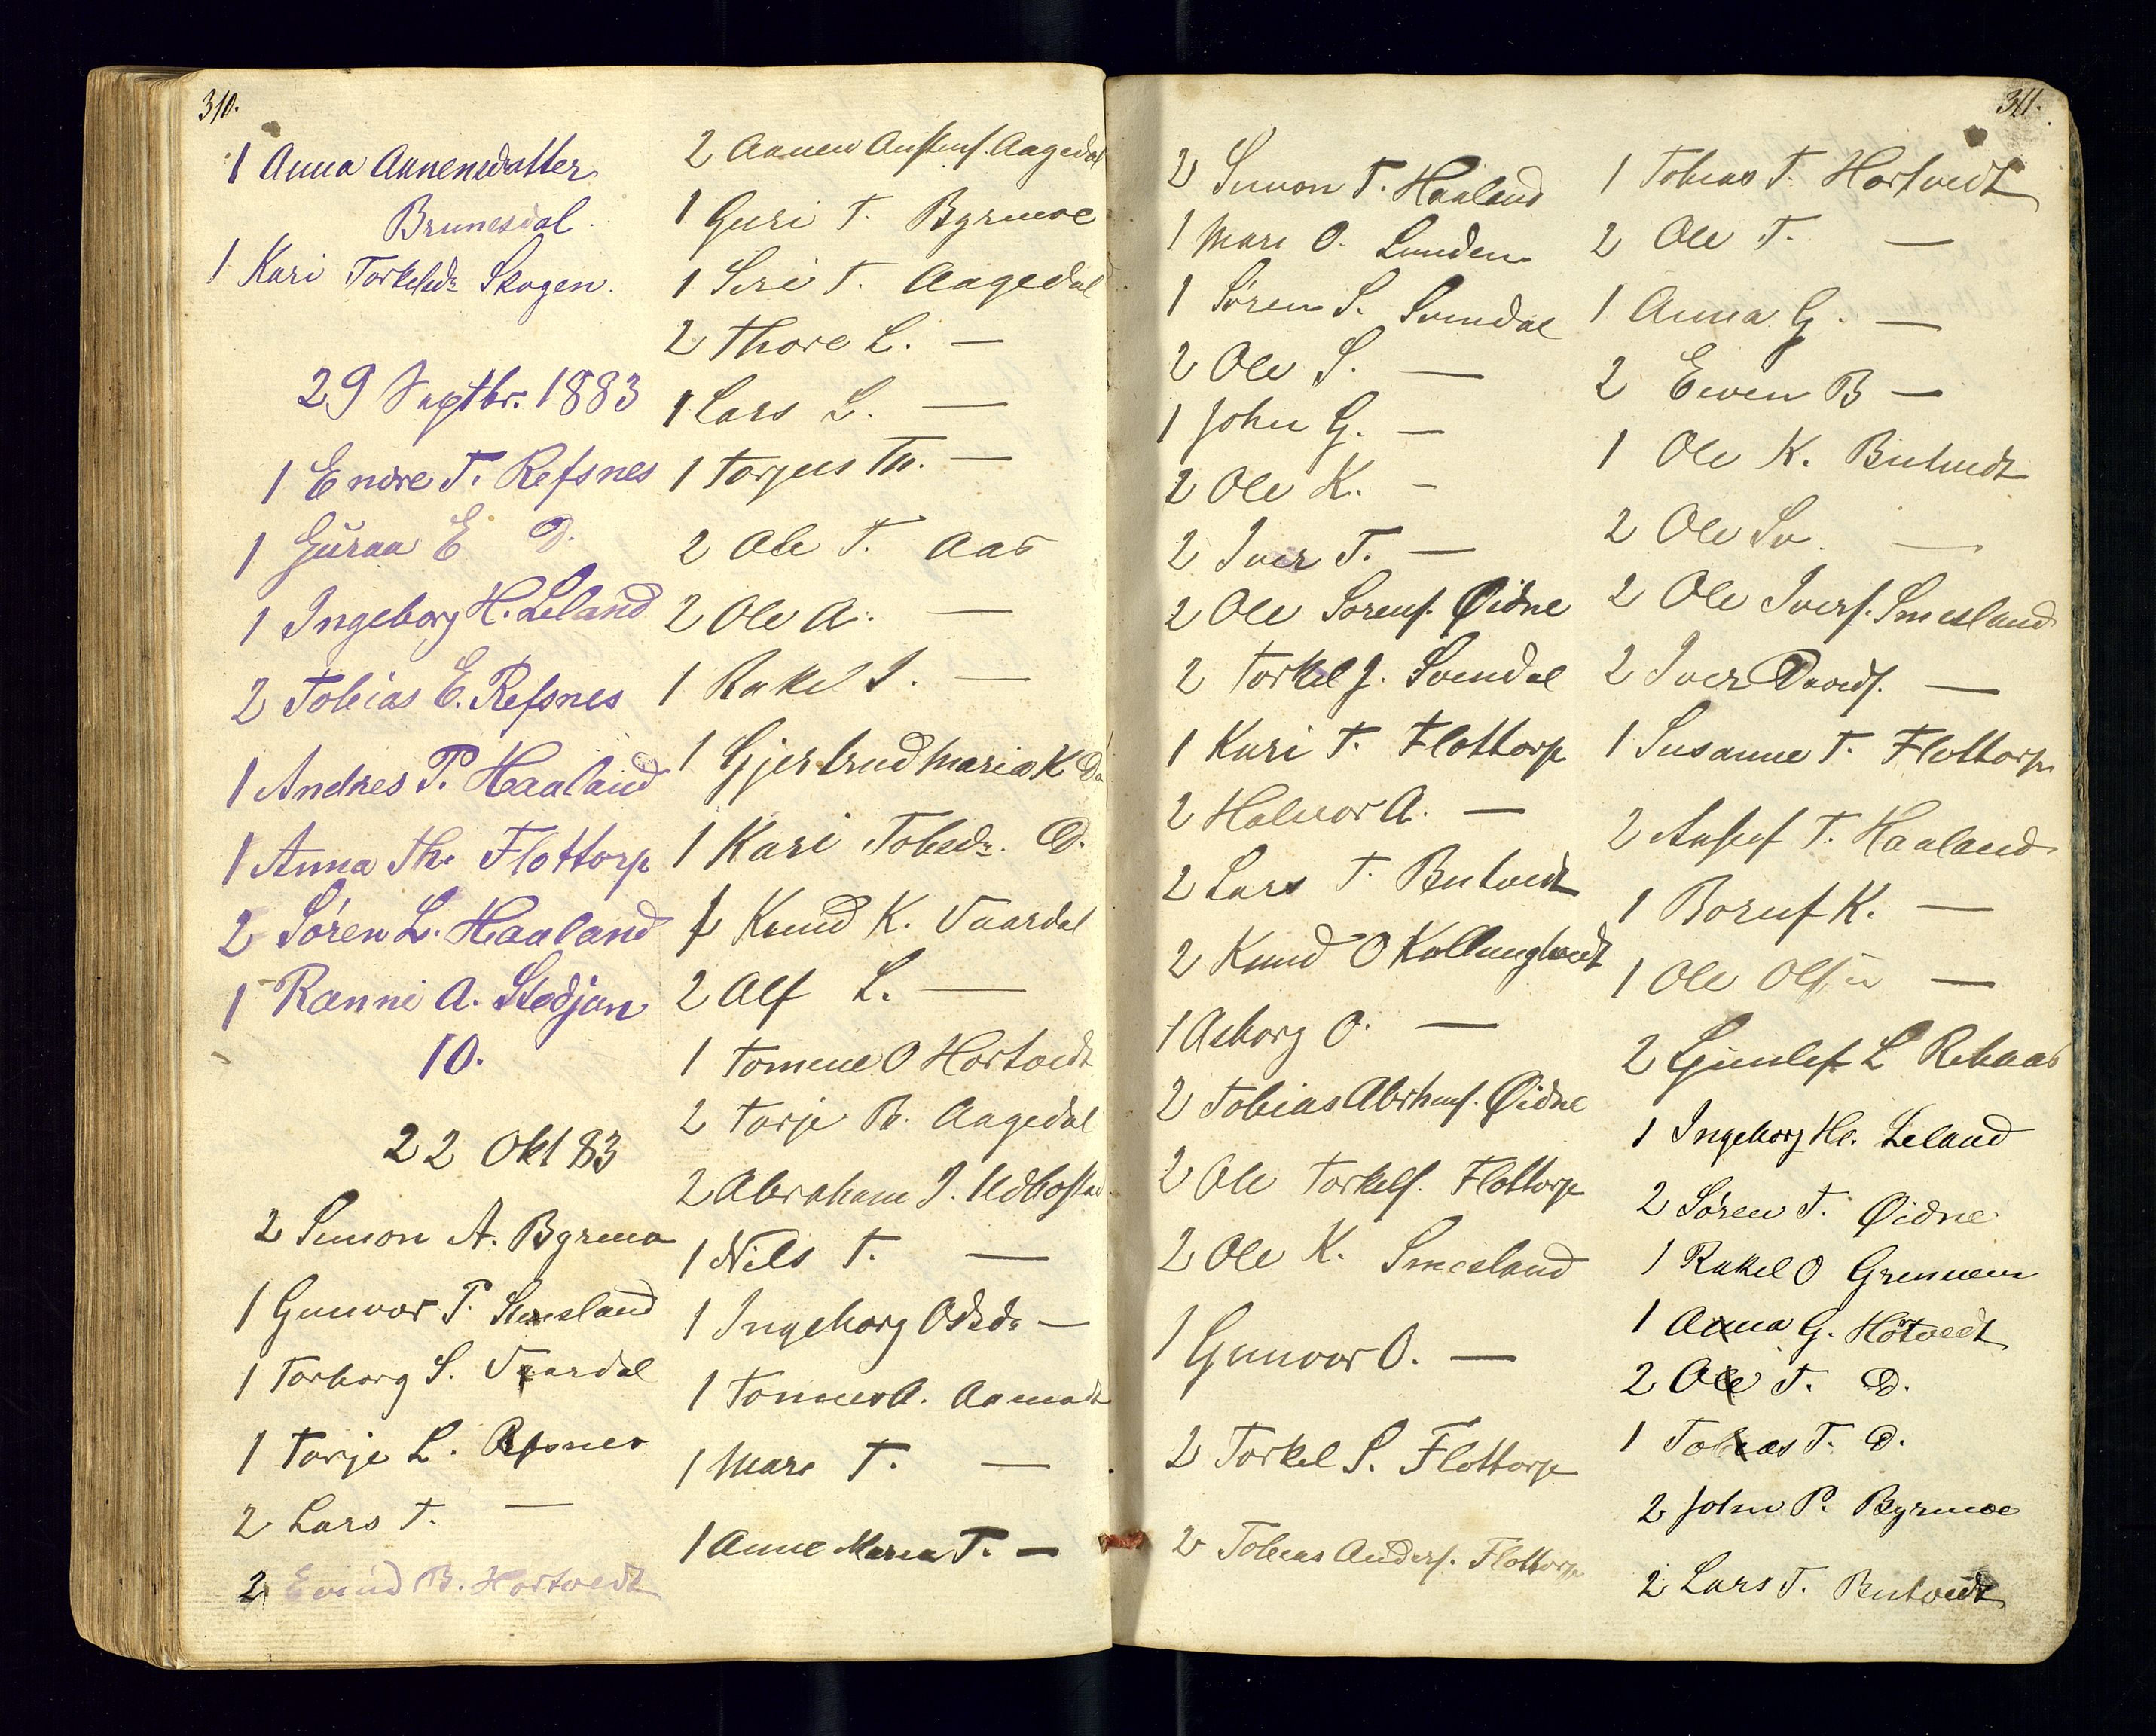 310.
1 Anna Aanensdatter
Brunesdal.
1 Kari Torkelsdr Skogen.
29 Septbr. 1883
1 Endre T. Refsnes
1 Guraa E D.
1 Ingeborg H. Leland
2 Tobias E. Refsnes
1 Andres P. Haaland
1 Anna Th. Flottorp
2 Sören L. Haaland
1 Ranni A. Stedjan
10.
22 Okt 83
2 Simon A. Byrmo
1 Gunvor P. Smesland
1 Torborg S. Vaardal
1 Torje L. Refsnes
2 Lars T. —
2 Eivind B. Hortvedt
2 Aanen Austens. Aagedal
1 Guri T. Byrmoe
1 Siri T. Aagedal
2 Thore L. —
1 Lars L. —
1 Torjus Th. —
2 Ole T. Aas
2 Ole A. —
1 Rakel S. —
1 Gjertrud Maria K D.
1 Kari Tobsdr. D.
1 Knud K. Vaardal
2 Alf L. —
1 Tomine O Hortvedt
2 Torje B. Aagedal
2 Abraham J. Udbostad
1 Nils T. —
1 Ingeborg Odsdr —
1 Tonnes A. Aamodt
1 Mari T. —
1 Anne Maria T. —
311.
2 Simon T. Haaland
1 Mari O. Lunden
1 Sören S. Svindal
2 Ole S. —
1 John G. —
2 Ole K. —
2 Iver T. —
2 Ole Sörens. Øidne
2 Torkel J. Svendal
1 Kari T. Flottorp
2 Halvor A. —
2 Lars T. Butvedt
2 Knud O Kollungtvedt
1 Asborg O. —
2 Tobias Abrhms. Øidne
2 Ole Torkels. Flottorp
2 Ole K. Smesland
1 Gunvor O. —
2 Torkel S. Flottorp
2 Tobias Anders. Flottorp
1 Tobias T. Hortvedt
2 Ole T. —
1 Anna G. —
2 Eiven B —
1 Ole K. Butvedt
2 Ole Sv. —
2 Ole Ivers. Smesland
2 Iver Davids. —
1 Susanne T. Flottorp
2 T. Haaland
1 K. —
1 Ole Olsen —
2 Gunlef L Rebaas
1 Ingeborg H. Leland
2 Sören T. Øidne
1 Rakel O Grennem
1 Anna G. Hötvedt
2 Ole T. D.
1 Tobias T. D.
2 John P. Byrmoe
2 Lars T. Butvedt